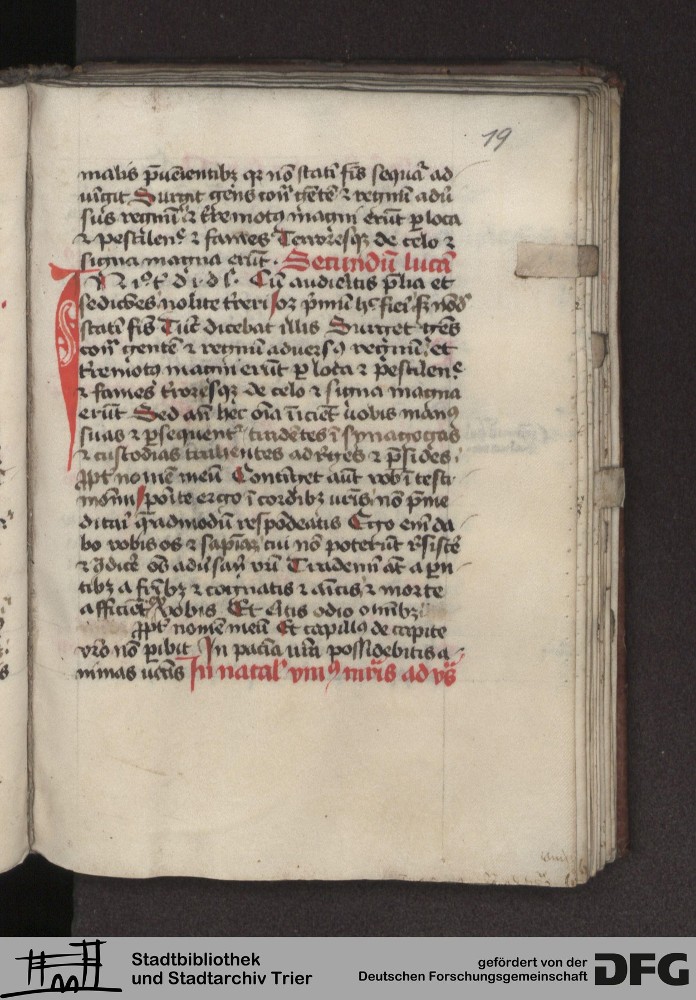 19
malis p̄uēientibȝ qꝛ nō stati᷒ fis sequit᷑ ad
iūgit Surget gens cont̄ gētē ⁊ regnū adū
sus regnū ⁊ t̄remotꝯ magni erūt ꝑ loca
⁊ pestilenc̄ ⁊ fames Terroresqȝ de celo ⁊
signa magna erūt . Secundū lucā
IN i° t̄ d i d ſ. Cū audieritis p̄lia et
sedic̄ōes nolite t̄reri Opȝ p̄mū h̄ fieri sȝ nōdū
statī fīs Tūc dicebat illis Surget gēs
cont̄ gentē ⁊ regnū aduersꝯ regnū et
t̄remotꝯ magni erūt ꝑ loca ⁊ pestilenc̄
⁊ fames t̄roresqȝ de celo ⁊ signa magna
erūt Sed an̄ hec oīa īicient uobis manꝯ
suas ⁊ ꝑsequent᷑ tradētes ī synagogas
⁊ custodias trahentes ad reges ⁊ p̄sides
ꝓpt̄ nomē meū Continget aūt vob̄ ī testi
moniū ponite ergo ī cordibȝ ur̄is nō p̄me
ditari quēadmodū respōdeatis Ego enī da
bo vobis os ⁊ sapiam̄ cui nō poterūt r̄sistē
⁊ ꝯdicē oēs adūsarij vr̄i Trademī āt a parē
tibȝ ⁊ fr̄ibȝ ⁊ cognatis ⁊ aīcis ⁊ morte
afficient ex vobis Et eritis odio omībȝ
ꝓpt̄ nomē meū Et capillꝰ de capite
vr̄o nō ꝑibit In paciā vr̄a possidebitis a
nimas ur̄as In natal᷒ vniꝯ mr̄is ad vs̄
Stadtbibliothek
und Stadtarchiv Trier
gefördert von der
Deutschen Forschungsgemeinschaft
DFG